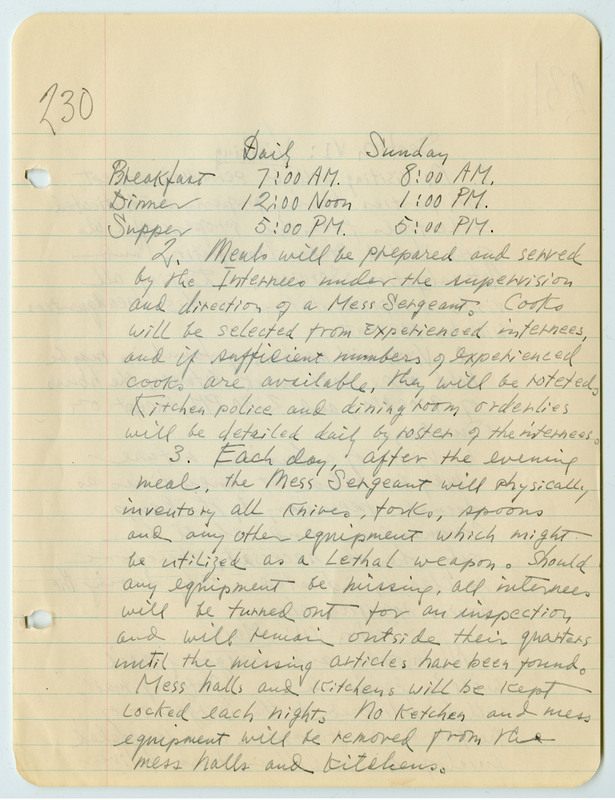 230
Daily Sunday
Breakfast 7:00 AM. 8:00 AM.
Dinner 12:00 Noon 1:00 PM.
Supper 5:00 PM. 5:00 PM.
2. Meals will be prepared and served
by the Internees under the supervision
and direction of a Mess Sergeant. Cooks
will be selected from experienced internees,
and if sufficient numbers of experienced
cooks are available, they will be roteted.
Kitchen police and dining room orderlies
will be detailed daily by roster of the internees.
3. Each day, after the evening
meal, the Mess Sergeant will physically
inventory all knives, forks, spoons
and any other equipment which might
be utilized as a Lethal weapon. Should
any equipment be missing, all internees
will be turned out for an inspection
and will remain outside their quarters
until the missing articles have been found.
Mess halls and kitchens will be kept
locked each night. No Ketchen and mess
equipment will be removed from the
mess halls and kitchens.